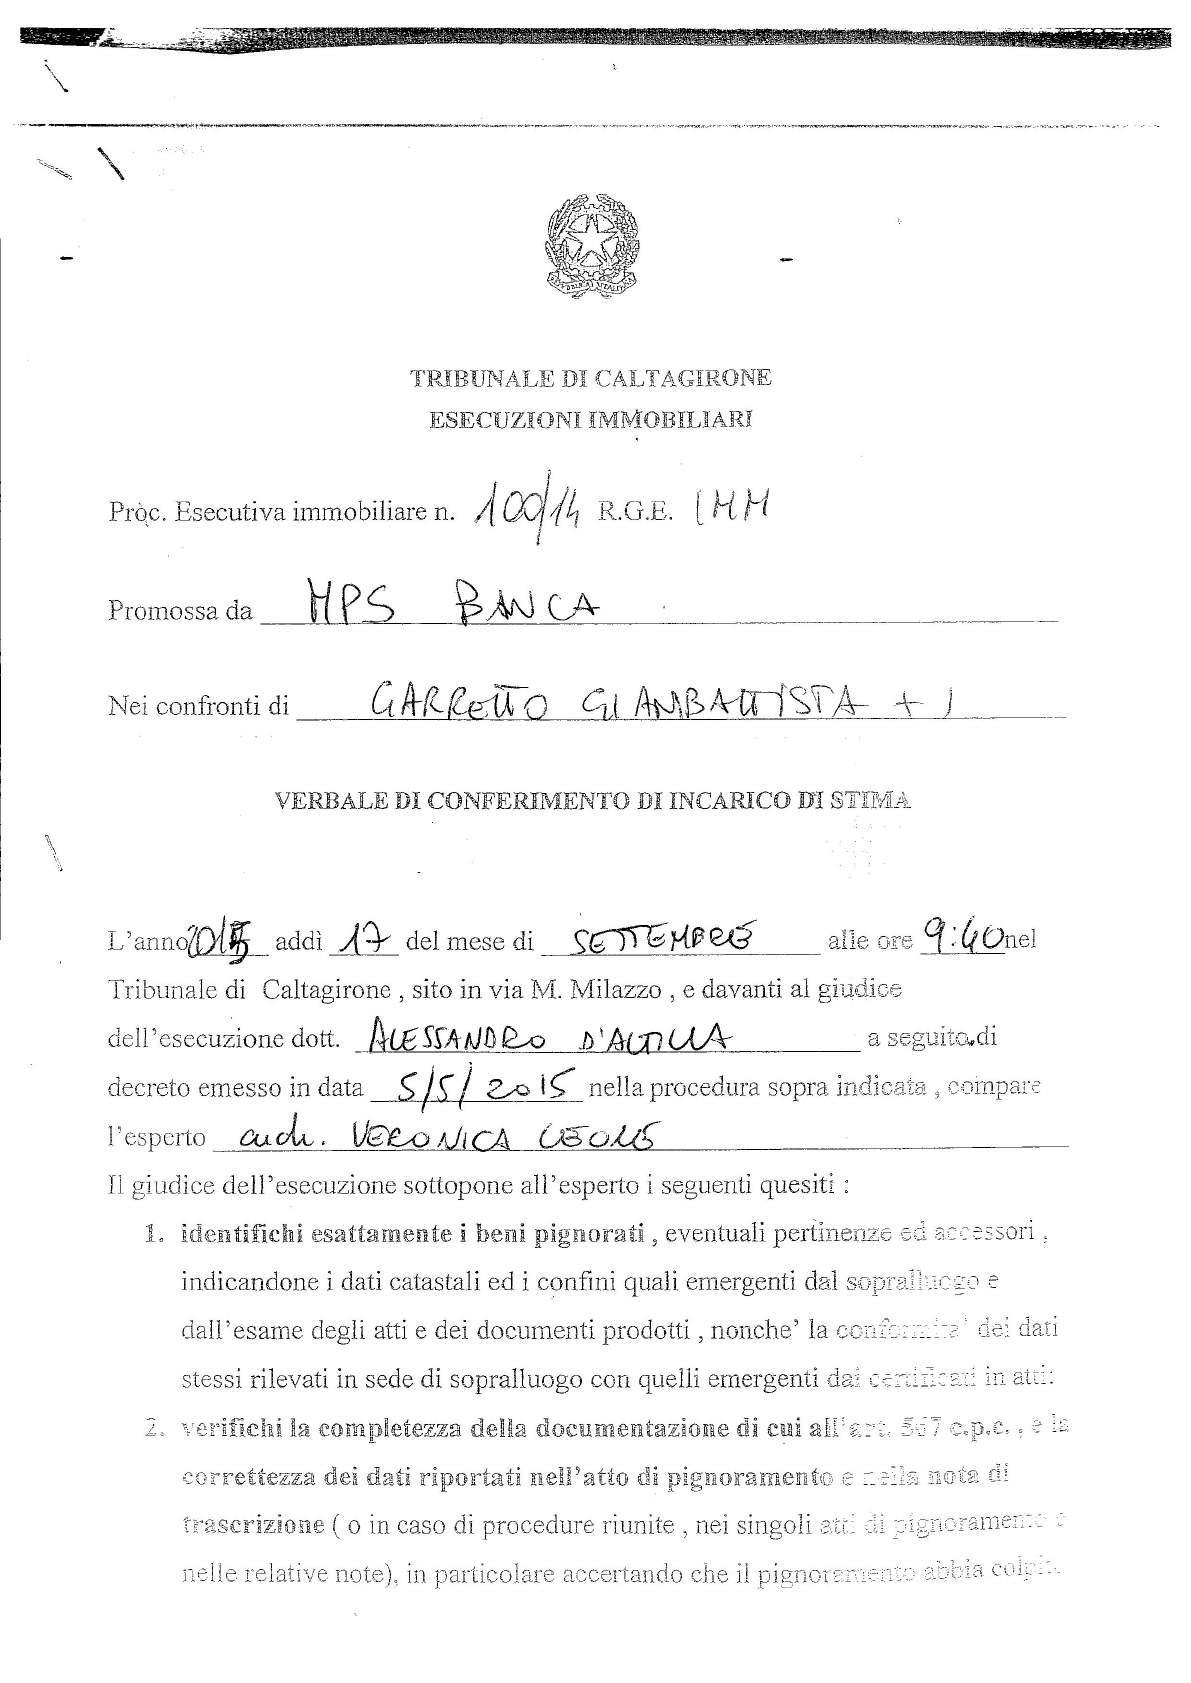 TRIBUNALE DI CALTAGIRONE
ESECUZIONI IMMOBILIARI
Proc. Esecutiva immobiliare n. 100/14 R.G.E. IMM
Promossa da MPS BANCA
Nei confronti di GARRETTO GIAMBATTISTA + 1
VERBALE DI CONFERIMENTO DI INCARICO DI STIMA
L'anno 2015 addì 17 del mese di SETTEMBRE alle ore 9:40 nel
Tribunale di Caltagirone , sito in via M. Milazzo , e davanti al giudice
dell'esecuzione dott. ALESSANDRO a seguito di
decreto emesso in data 5/5/2015 nella procedura sopra indicata , compare
l'esperto arch. VERONICA LEONE
Il giudice dell'esecuzione sottopone all'esperto i seguenti quesiti :
1. identifichi esattamente i beni pignorati , eventuali pertinenze ed accessori ,
indicandone i dati catastali ed i confini quali emergenti dal sopralluogo e
dall'esame degli atti e dei documenti prodotti , nonche' la conformita' dei dati
stessi rilevati in sede di sopralluogo con quelli emergenti dai certificati in atti;
2. verifichi la completezza della documentazione di cui all'art. 567 c.p.c. , e la
correttezza dei dati riportati nell'atto di pignoramento e nella nota di
trascrizione ( o in caso di procedure riunite , nei singoli atti di pignoramento e
nelle relative note), in particolare accertando che il pignoramento abbia colpito